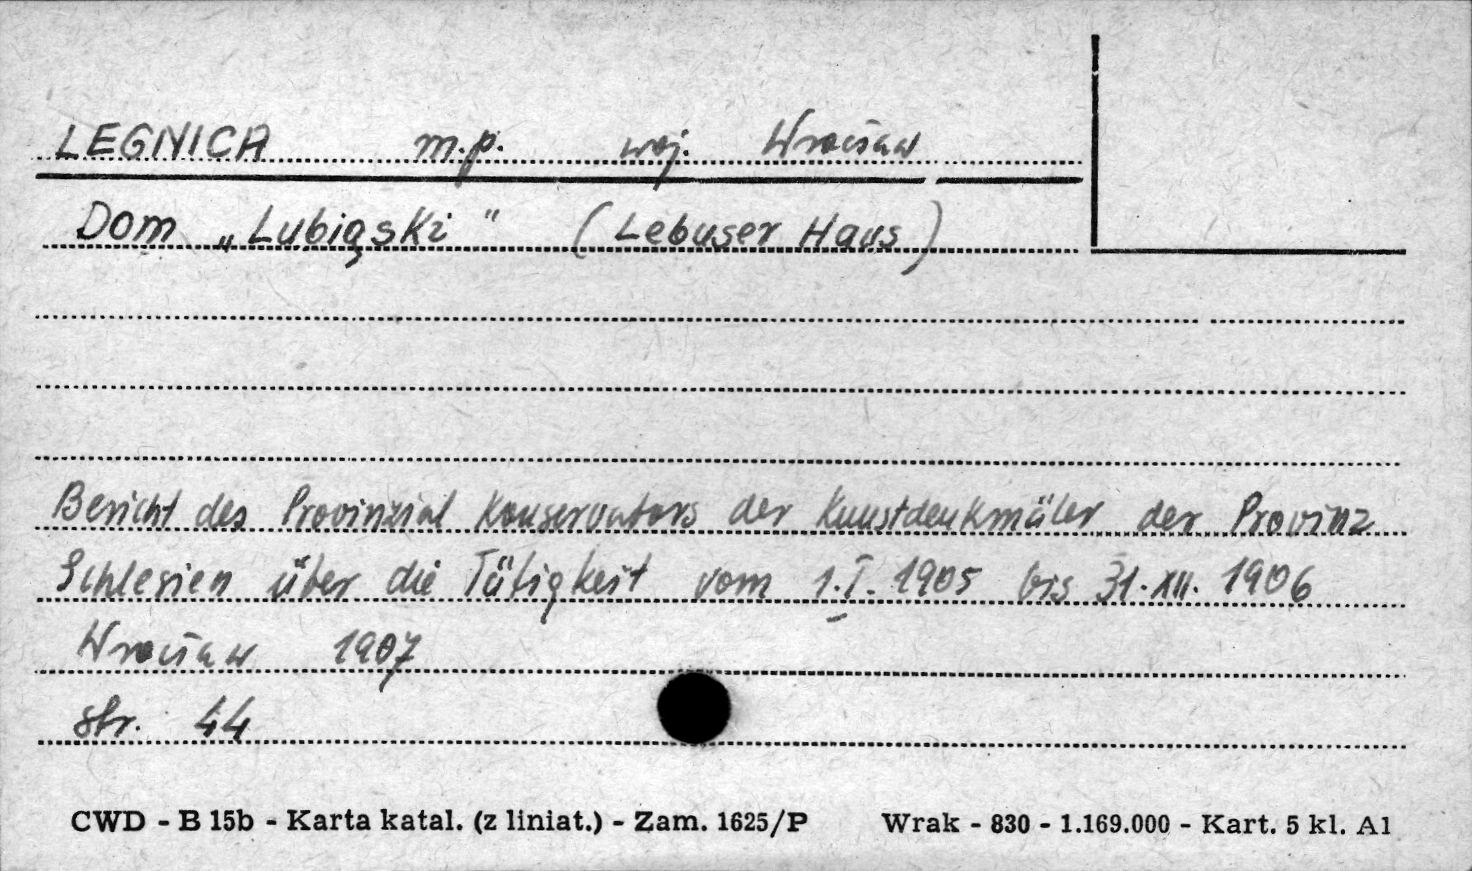 LEGNICA m.p. woj. Wrocław
Dom „Lubiąski" (Lebuser Haus)
Bericht des Provinzial Konservators der Kunstdenkmäler der Provinz
Schlesien über die Tätigkeit vom 1.I. 1905 bis 31.XII. 1906
Wrocław 1907
str. 44
CWD - B 15b - Karta katal. (z liniat.) - Zam. 1625/P Wrak - 830 - 1.169.000 - Kart. 5 kl. A1